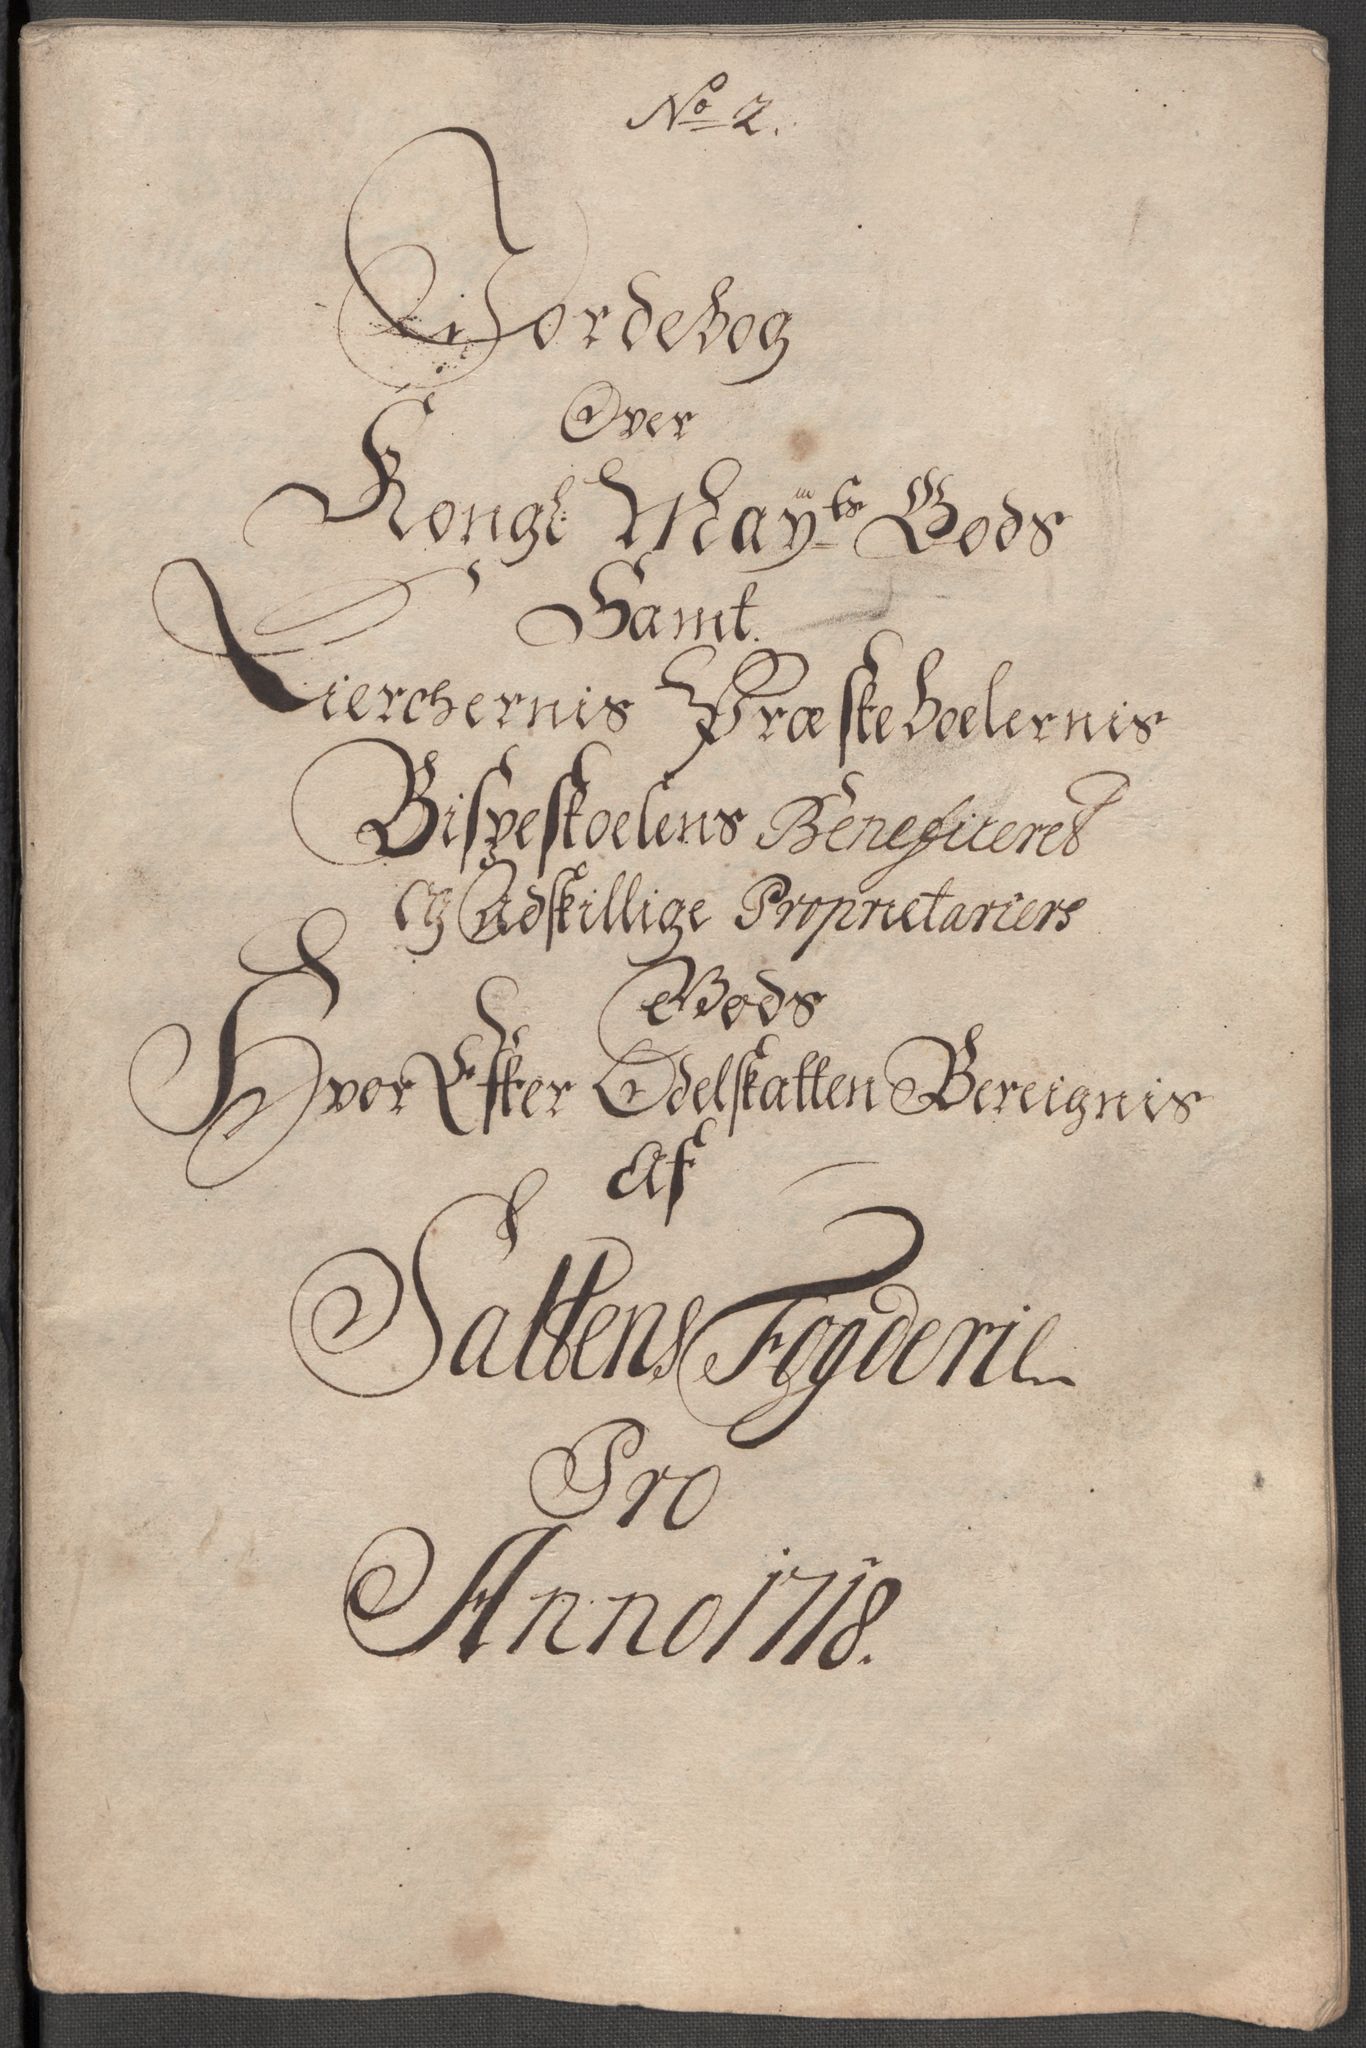 No 2.
Jordebog
Over
Kongl: Mayts Gods
Samt
Kierchernis Præsteboelernis
Bispestoelens Beneficeret
Og Adskillige Proprietariers
Gods
Hvor Efter Odelskatten Bereignis
Af
Saltens Fogderie
Pro
Anno 1718.